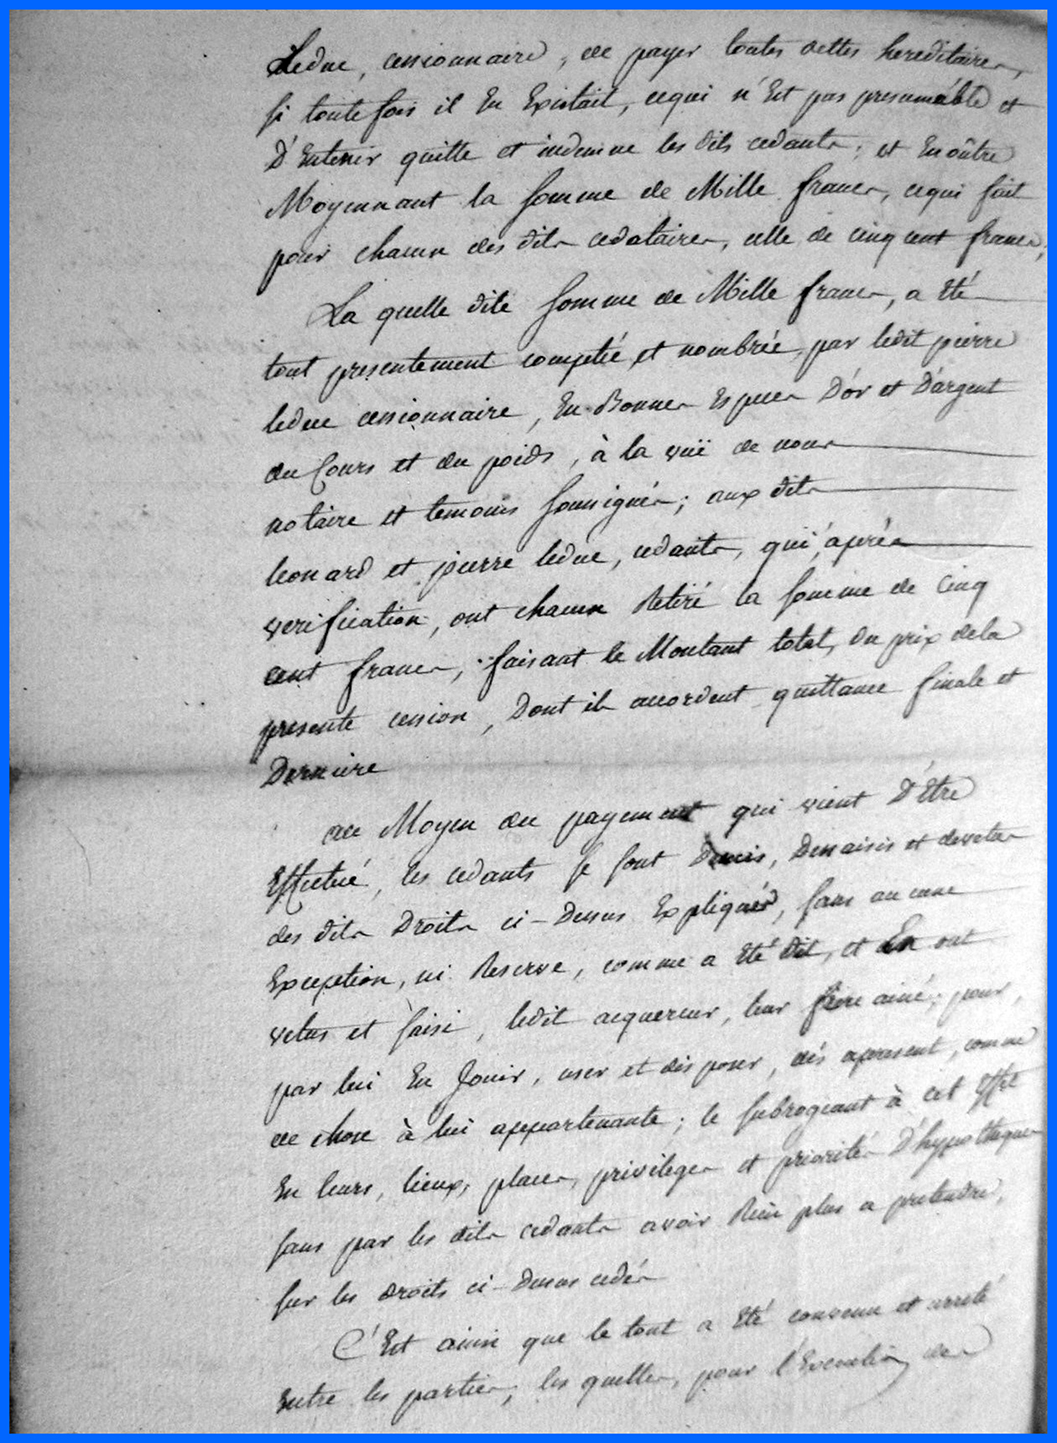 Leduc, cessionnaire, de payer toutes dettes hereditaires,
si toute fois il En Existait, cequi n'Est pas presumable et
D'Entenir quitte et indemne les dits cedants; et Enoûtre
Moyennant la somme de Mille francs, cequi fait
pour chacun des dits cedataires, celle de cinq cent francs,
La quelle dite somme de Mille francs, a Eté
tout presentement comptée et nombrée, par ledit pierre
leduc cessionnaire, En Bonnes Espices D'or et D'argent
du Cours et du poids, à la vuë de nous
notaire et temoins soussignés; aux dits
leonard et pierre leduc, cedants, qui, après
verification, ont chacun Retiré la somme de Cinq
cent francs, faisant le Montant total, du prix dela
presente cession, Dont ils accordent quittance finale et
Derniere
au Moyen du payement qui vient D'Etre
Effectué, les cedants se sont Demis, Dessaisis et devetus
des dits Droits ci-Dessus Expliqués, sans aucune
Exception, ni Reserve, comme a Eté dit, et En ont
vetus et saisi, ledit acquereur, leur frere ainé; pour,
par lui En Jouir, user et disposer, dés apresent, comme
de chose à lui appartenante; le subrogeant à cet Effet
En leurs, lieux, places, privileges et priorités D'hypotheques
sans par les dits cedants avoir Rien plus a pretendre,
sur les Droits ci-Dessus cedés
C'Est ainsi que le tout a Eté convenu et arreté
Entre les parties, les quelles, pour l'Execution des